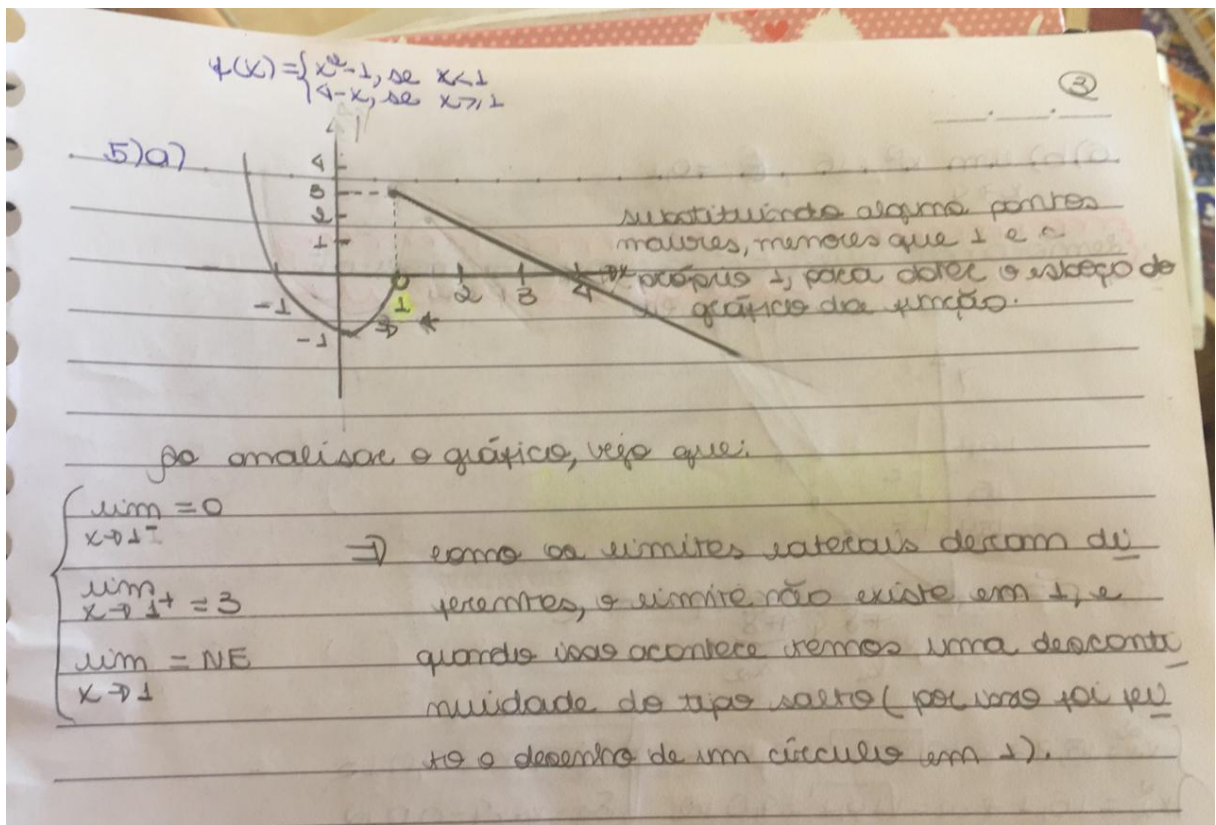 f(x) = { x²-1, se x<1
4-x, se x≥1
3
5)a)
4
3
2
1
-1
1
2
3
4
-1
substituindo alguns pontos
maiores, menores que 1 e o
próprio 1, para obter o esboço do
gráfico da função.
Ao analisar o gráfico, vejo que:
lim = 0
x→1⁻
lim = 3
x→1⁺
lim = NE
x→1
⇒ como os limites laterais deram di
ferentes, o limite não existe em 1, e
quando isso acontece temos uma desconti
nuidade do tipo salto (por isso foi fei
to o desenho de um círculo em 1).